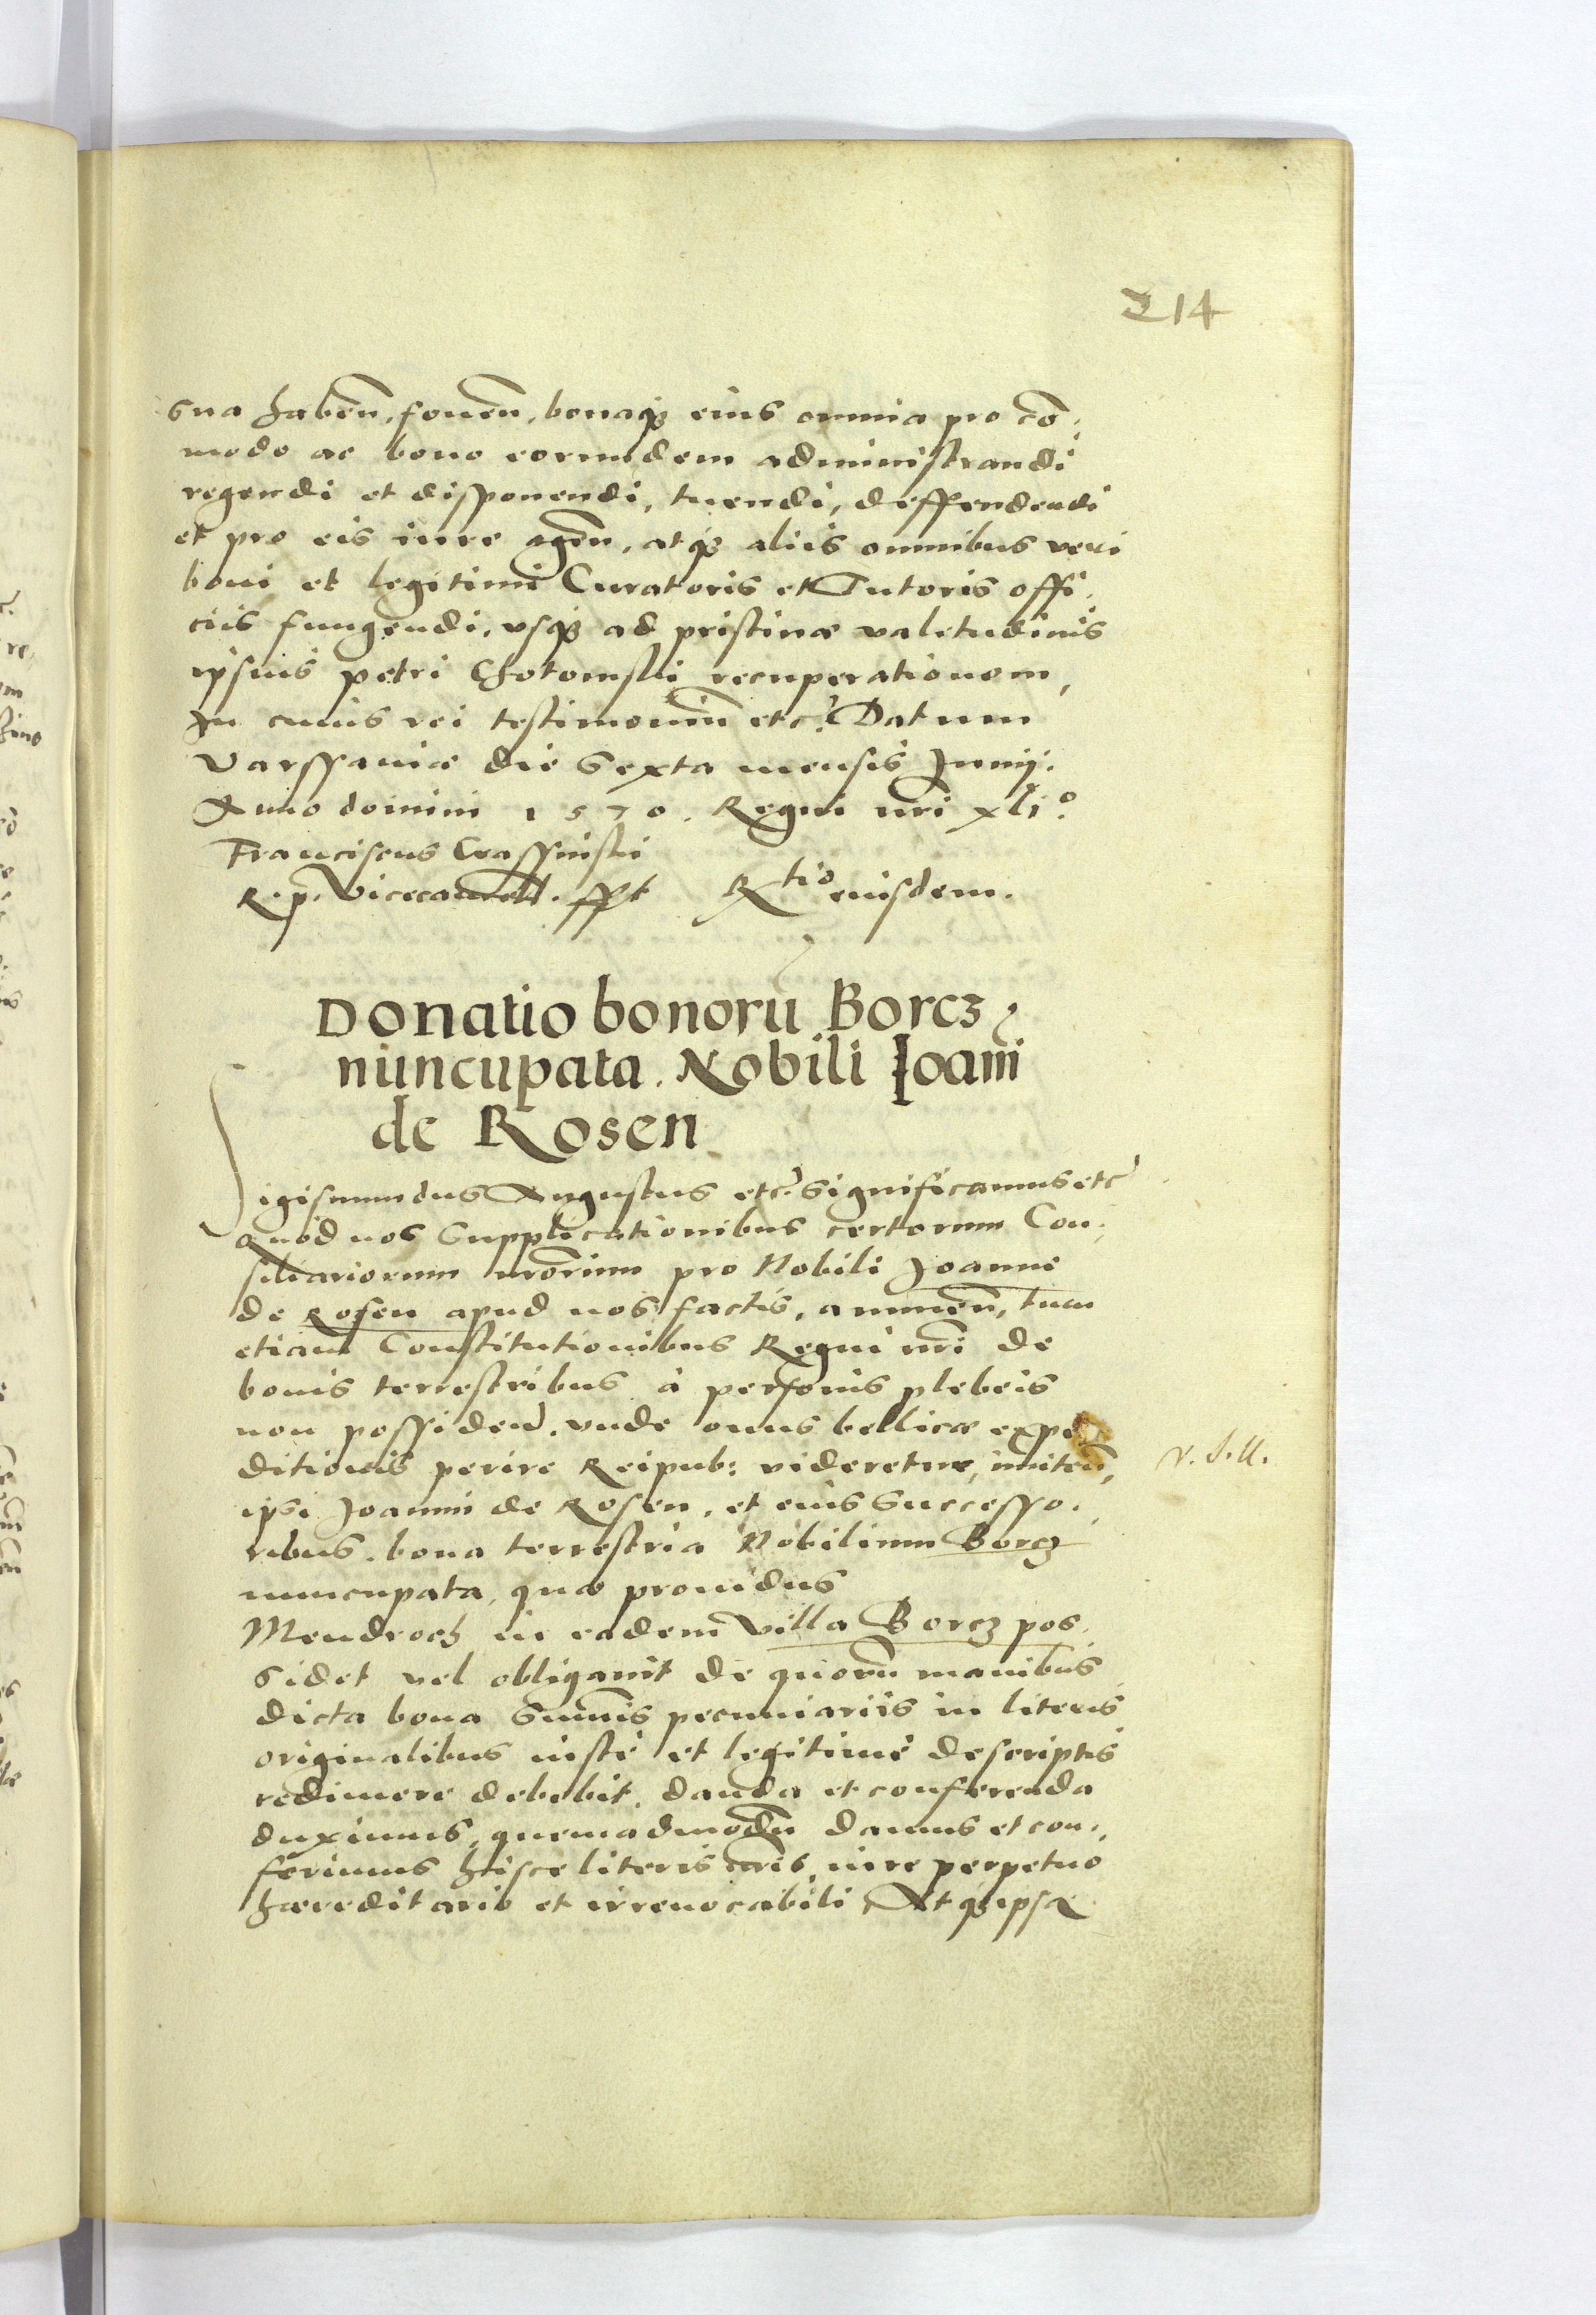 214
sua haben̄, fouen̄, bonaqȝ eius omnia pro cō.
modo ac bono eorundem administrandi
regendi et disponendi, tuendi, deffendendi
et pro eis iure agen̄, atqȝ aliis omnibus veri
boni et legitimi Curatoris et Tutoris offi.
ciis fungendi, vsqȝ ad pristinæ valetudinis
ipsius petri Chotomski recuperationem,
In cuius rei testimoniū etc. Datum
Varssauiæ die Sexta mensis Junij.
Anno domini 1570. Regni nr̄i xli°.
Franciscus Crassinski
R. p. Vicecancell. sspt Rtio eiusdem.
Donatio bonorū Borcz
nuncupata. Nobili Joañi
de Rosen
Sigismundus Augustus etc. significamus etc
Quod nos Supplicationibus certorum Con.
siliariorum nr̄orum pro Nobili Joanne
de Rosen apud nos factis, annuen̄, tum
etiam Constitutionibus Regni nr̄i de
bonis terrestribus à personis plebeis
non possidend̄. vnde onus bellicæ expe
ditionis perire Reipub: videretur, initen̄,
ipsi Joanni de Rosen, et eius Successo.
ribus, bona terrestria Nobilium Borcz
nuncupata, quæ prouidus
Mendroch in eadem villa Borcz pos.
sidet vel obligauit de quorū manibus
dicta bona Summis pecuniariis in literis
originalibus iustè et legitimè descriptis
redimere debebit. danda et conferenda
duximus, quemadmodū damus et con.
ferimus hisce literis nr̄is, iure perpetuo
hæreditario et irreuocabili, Atqȝ ipsa